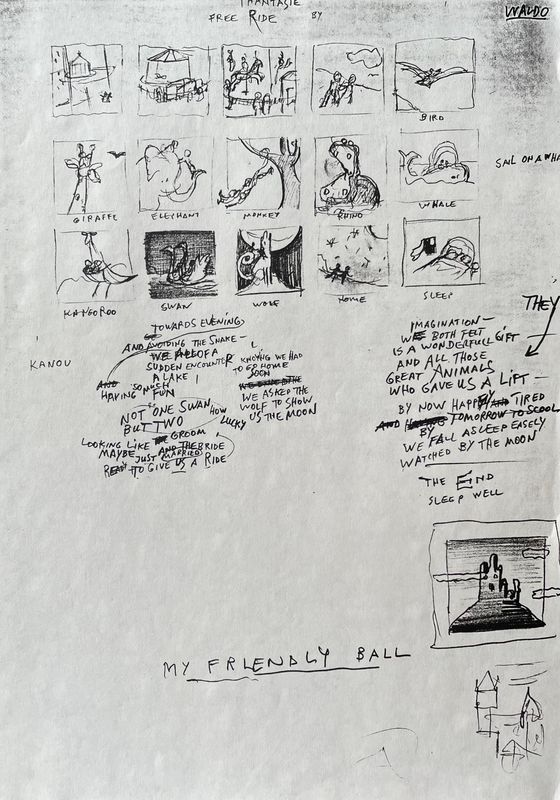 PHANTASIE
FREE RIDE BY
WALDO
BIRD
GIRAFFE
ELEPHANT
MONKEY
RHINO
WHALE
SAIL ON A WHA
KANGOROO
SWAN
WOLF
HOME
SLEEP
THEY
KANOU
TOWARDS EVENING
AND AVOIDING THE SNAKE-
WE ALL OF A
SUDDEN ENCOUNTER
A LAKE!
AND SO MUCH
HAVING FUN
NOT ONE SWAN,
BUT TWO HOW
LUCKY
LOOKING LIKE GROOM
MAYBE AND THE BRIDE
JUST MARRIED
READY TO GIVE US A RIDE
KNOWING WE HAD
TO GO HOME
SOON
WE ASKED THE
WOLF TO SHOW
US THE MOON
IMAGINATION-
WE BOTH FELT
IS A WONDERFULL GIFT-
AND ALL THOSE
GREAT ANIMALS
WHO GAVE US A LIFT-
BY NOW HAPPY AND TIRED
AND TOMORROW TO SCOOL
BY
WE FALL ASLEEP EASELY
WATCHED BY THE MOON
THE END
SLEEP WELL
MY FRIENDLY BALL